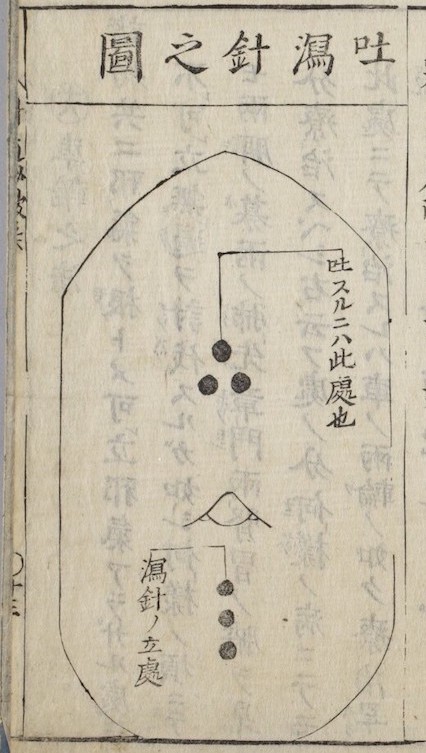 吐瀉針之圖
吐スルニハ此處也
瀉針ノ立處
〇十三